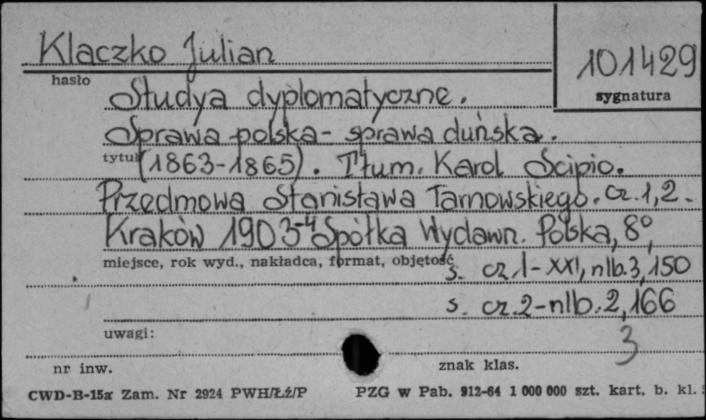 Klaczko Julian
101429
hasło
sygnatura
Studya dyplomatyczne.
Sprawa polska - sprawa duńska.
tytuł (1863-1865). Tłum. Karol Scipio.
Przedmowa Stanisława Tarnowskiego. cz. 1, 2.
Kraków 1903-4 Spółka Wydawn. Polska, 8°,
miejsce, rok wyd., nakładca, format, objętość
s. cz. 1 - XXI, nlb. 3, 150
s. cz. 2 - nlb. 2, 166
uwagi:
3
nr inw.
znak klas.
CWD-B-15a Zam. Nr 2924 PWH/Łź/P
PZG w Pab. 912-64 1 000 000 szt. kart. b. kl.